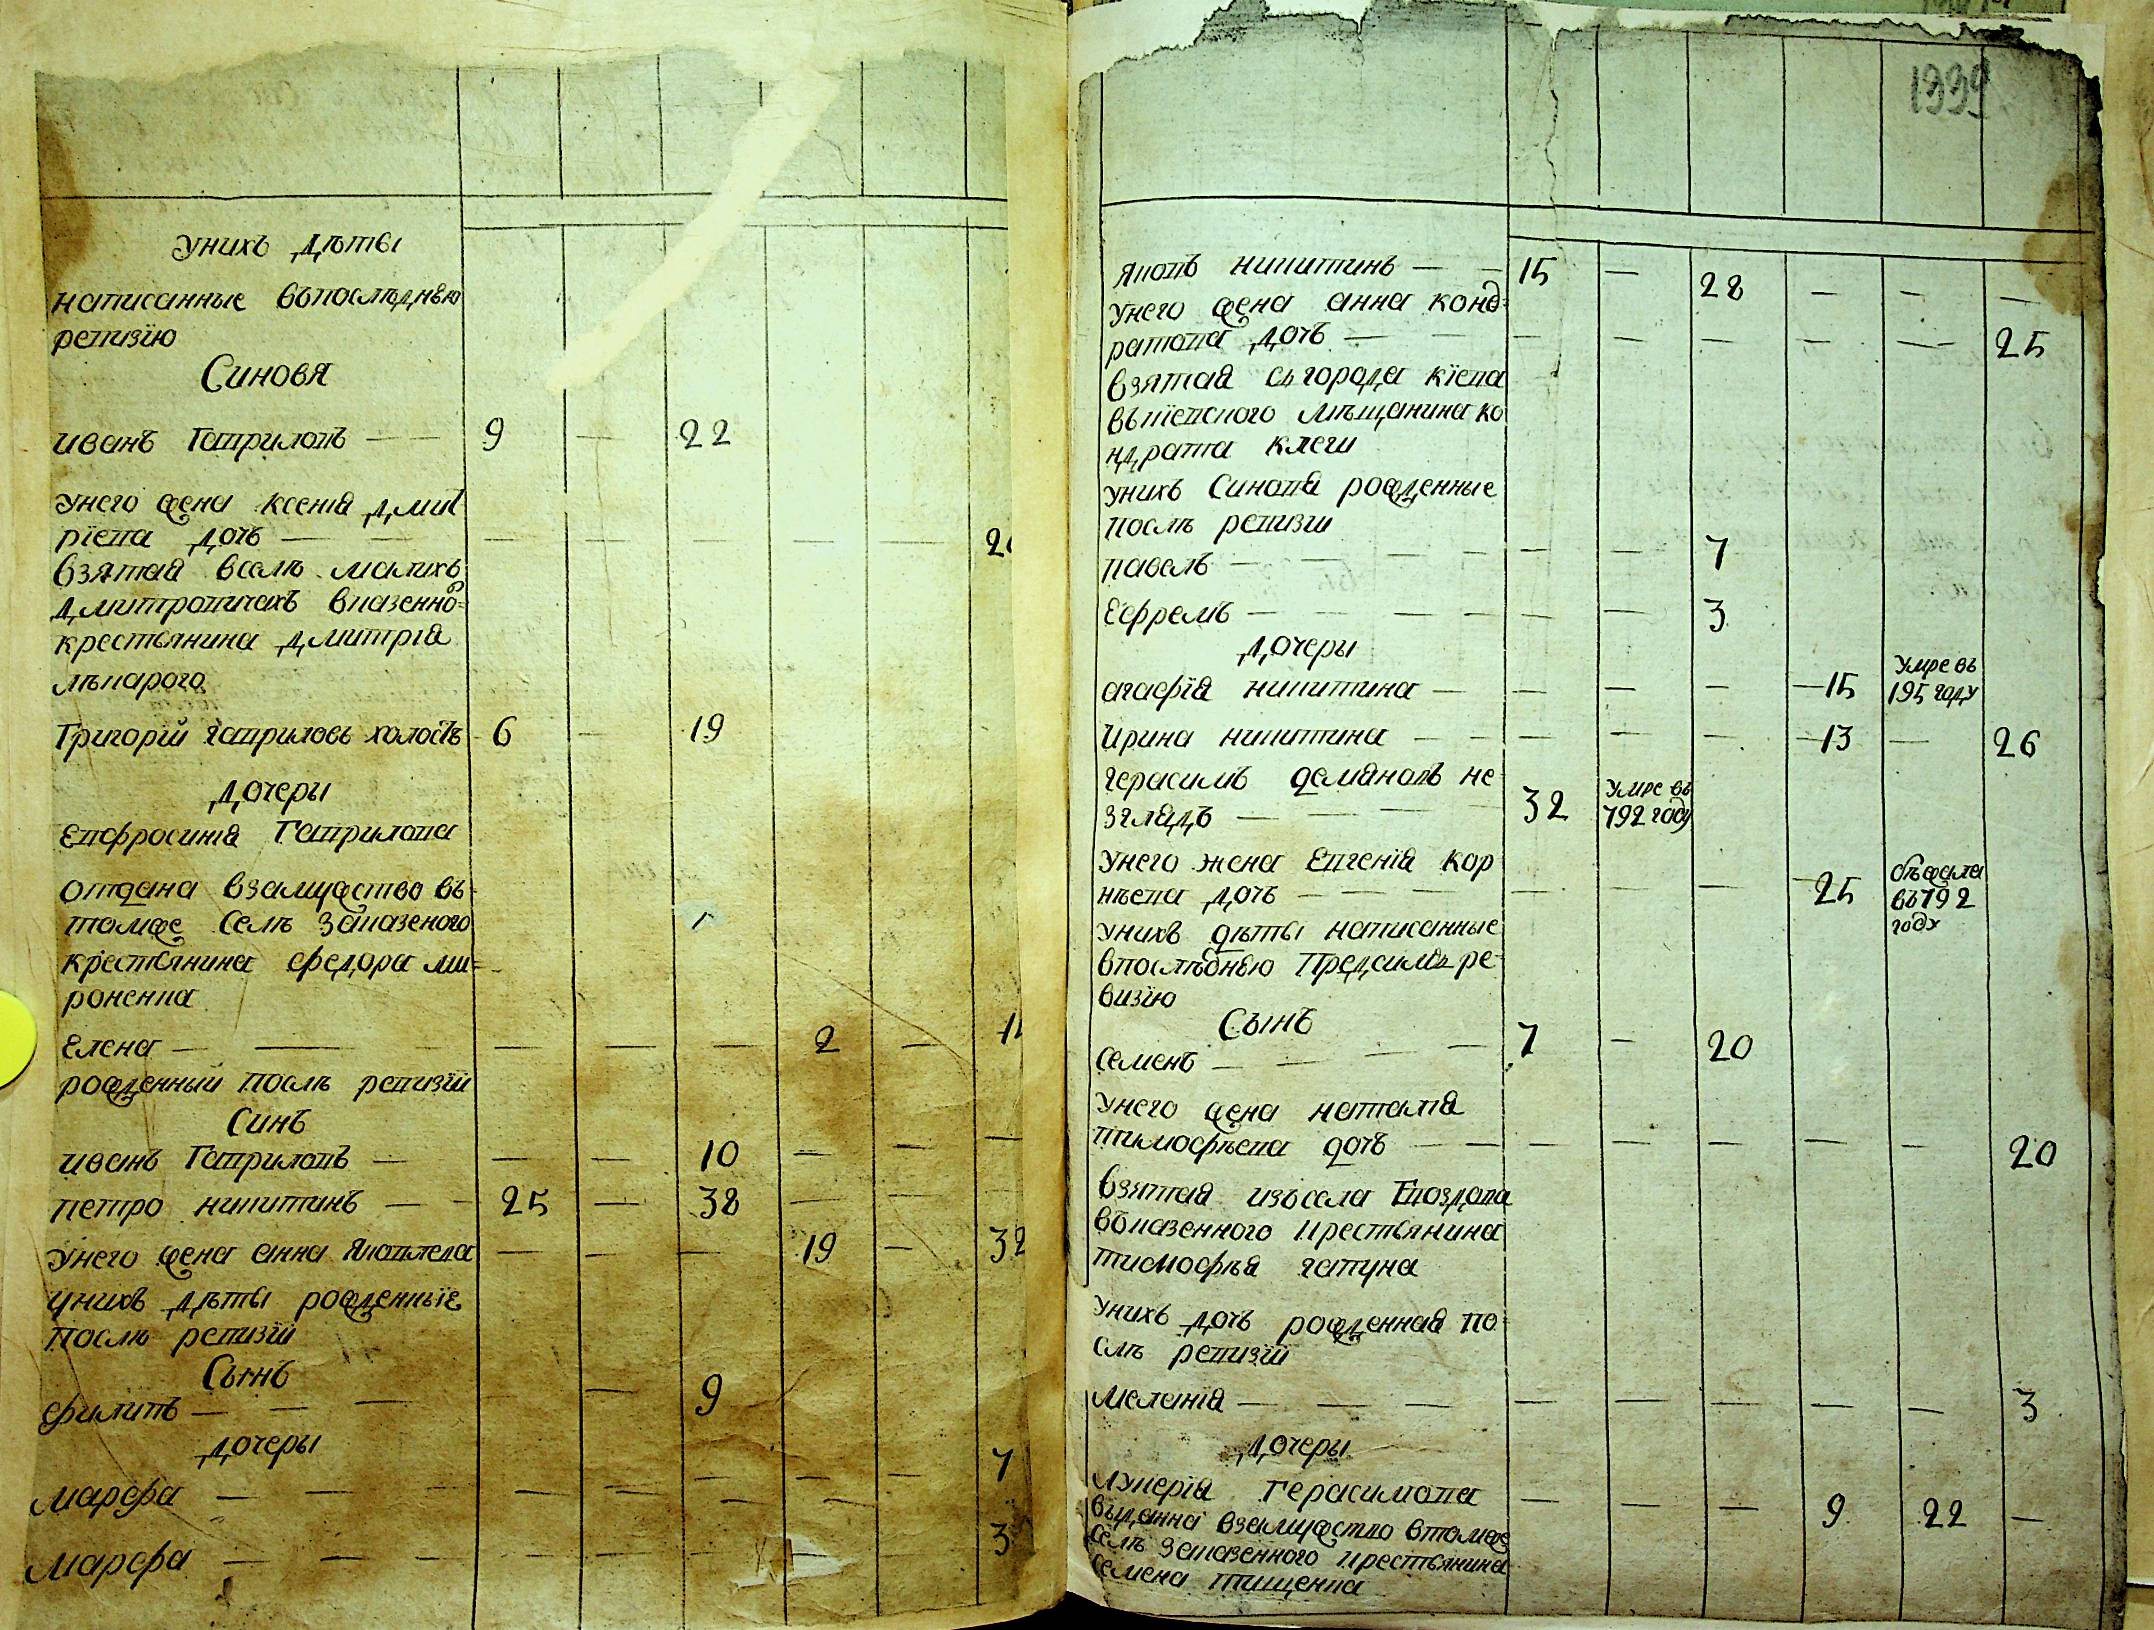 унихъ дѣты
написанные въпослѣднѣю
ревизїю
Синовя
иванъ Гавриловъ — — 9 — 22
унего жена ксенія дмит
рїева дочъ — — — — — — — 2
взятая вселѣ малихъ
дмитровичахъ вказенно=
крестьянина дмитрія
лѣкарого
Григорїй гавриловъ холостъ - 6 - 19
дочеры
Евфросинія Гаврилова
отдана взамужство въ-
томже селѣ заказеного
крестьянина федора ми=
роненка
Елена — — — — — — 2 —
рожденный послѣ ревизїй
Синъ
иванъ Гавриловъ — — — 10 — — —
петро никитинъ — — 25 — 38 — —
унего жена анна Яковлева — — — 19 — 32
унихъ дѣты рожденныїе
послѣ ревизїй
Сынъ
филипъ — — — — 9
дочеры
марфа — — — — — — — — 7
марфа — — — — — — — — 3
1339
Яковъ никитинъ — — 15 — 28 — — —
унего жена анна конд=
ратова дочъ — — — — — — — 25
взятая съгорода кїева
въкїевского мѣщанина ко
ндрата клеги
унихъ Синовя рожденные
послѣ ревизїи
павелъ — — — — — 7
Ефремъ — — — — — 3
дочеры
агафїя никитина — — — — 15 Умре въ
195 году
Ирина никитина — — — — — 13 — 26
герасимъ демяновъ не=
зглядъ — — — 32 Умре въ
792 году
унего жена Евгенїя кор
нѣева дочъ — — — — — — 25 бѣжала
въ 792
году
унихъ дѣты написанные
впослѣднѣю Предсимъ ре=
визїю
Сынъ
семенъ — — — — 7 — 20
унего жена наталїя
тимофѣева дочъ — — — — — — — 20
взятая изъсела Гвоздова
въказенного крестьянина
тимофѣя гапуна
унихъ дочъ рожденная по=
слѣ ревизїй
мелания — — — — — — — — — 3
дочеры
лукерїя Герасимова — — — 9 22 —
выданна взамужство втомже
селѣ заказенного крестьянина
семена тищенка